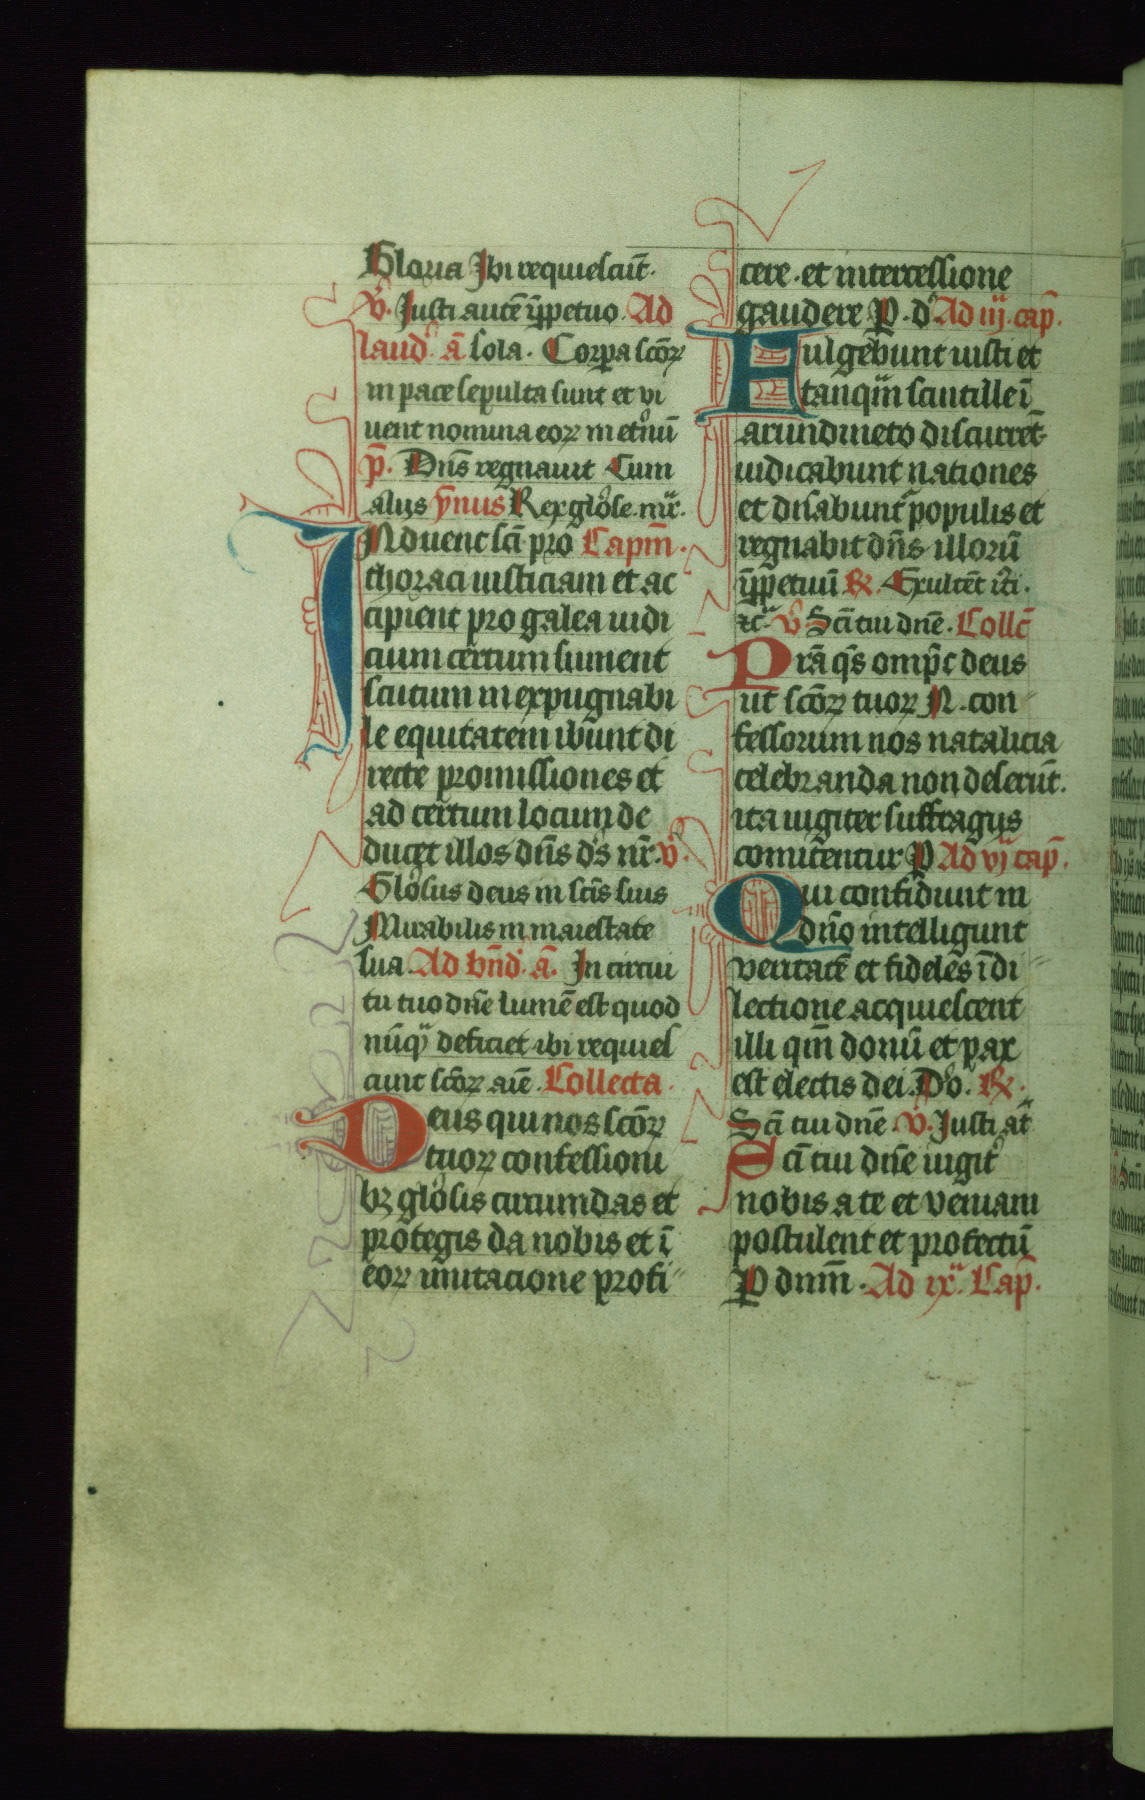 Gloria Ibi requiescūt.
v̊. Justi autē ī ꝑpetuo. Ad
laud̓. ā sola. Corpa scōꝝ
in pace sepulta sunt et vi
uent nomina eoꝝ in etnū
p̄. Dn̄s regnauit Cum
alijs ẏnus Rex glōse. mr̄.
INduent scī pro Capm̄.
thoraci iusticiam et ac
cipient pro galea iudi
cium certum sument
scutum inexpugnabi
le equitatem ibunt di
recte promissiones et
ad certum locum de
ducet illos dn̄s d̓s nr̄. v̊.
Glōsus deus in scīs suis
Mirabilis in maiestate
sua. Ad bn̄d̓. ā. In circui
tu tuo dn̄e lumē est quod
nūqͣ deficiet ibi requies
cunt scōꝝ aīe. Collecta.
Deus qui nos scōꝝ
tuoꝝ confessioni
bꝫ glōsis circumdas et
protegis da nobis et ī
eoꝝ imitacione profi
cere. et intercessione
gaudere P. d̓ Ad iij. cap̄.
Fulgebunt iusti et
tanqͣm scintille ī
arundineto discurrēt
iudicabunt nationes
et dn̄abunt̓ populis et
regnabit dn̄s illorū
ī ꝑpetuū ℟. Exultēt iu̓ti.
ꝛcͣ. v̊. Scī tui dn̄e. Collc̄
Prā qs̄ omp̄c deus
ut scōꝝ tuoꝝ N. con
fessorum nos natalicia
celebranda non deserūt.
ita iugiter suffragijs
comitentur P Ad vj cap̄.
Qui confidunt in
dn̄o intelligunt
veritatē et fideles ī di
lectione acquiescent
illi qm̄ donū et pax
est electis dei. D̊o. ℟.
Scī tui dn̄e. v̊. Justi at̄
Scī tui dn̄e iugit̓
nobis a te et veniam
postulent et profectū
P dnm̄. Ad ixͣ. Cap̄.